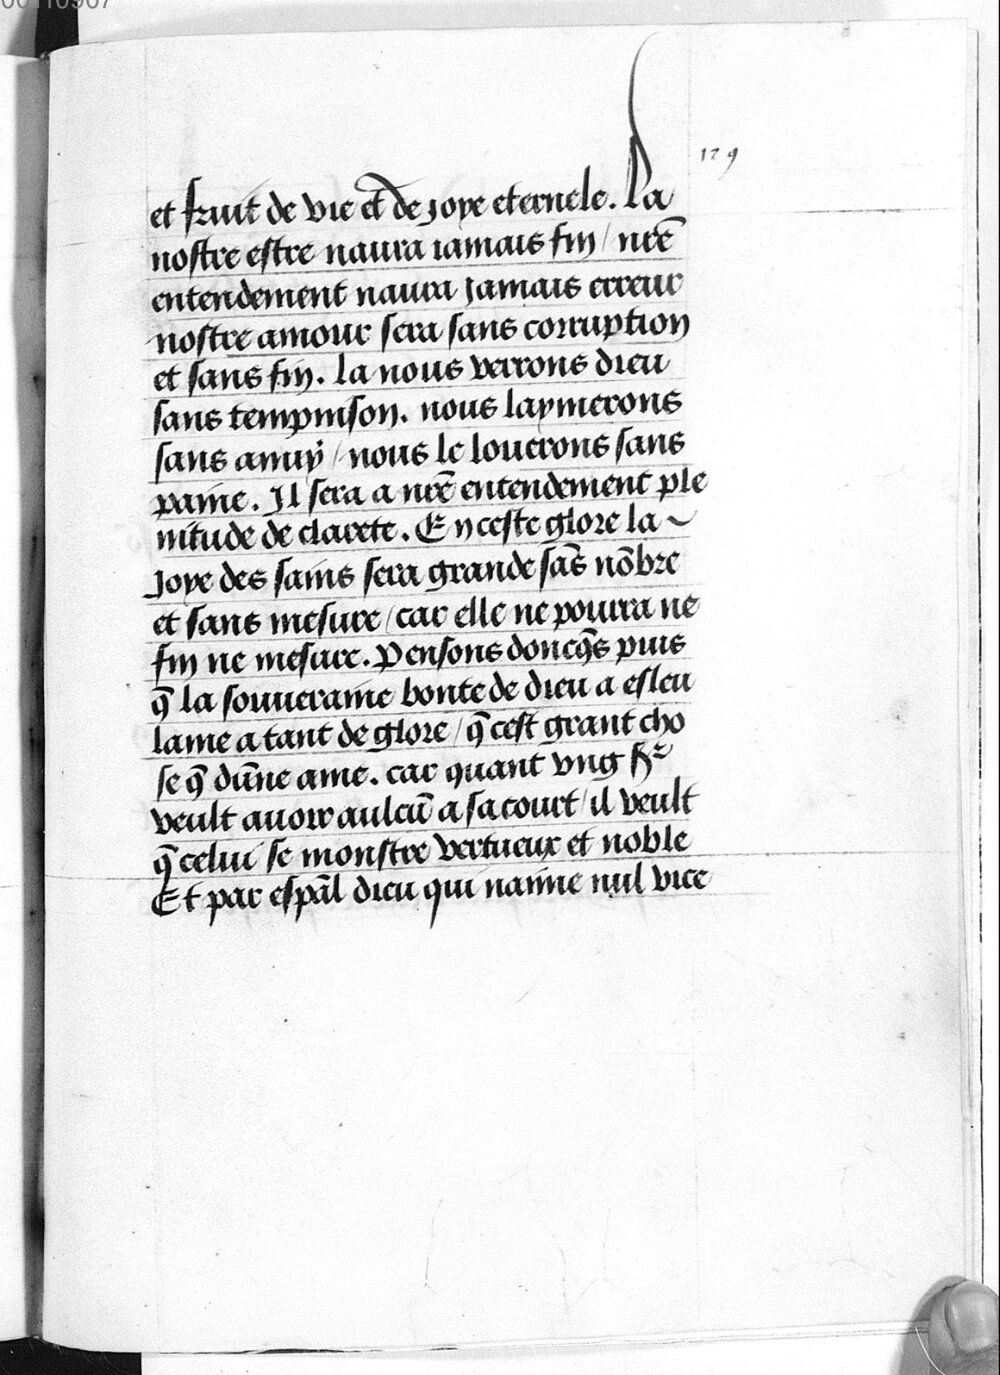 00110907
129
et fruit de vie et de joye eternele. La
nostre estre naura iamais fin / nr̃e
entendement naura jamais erreur
nostre amour sera sans corruption
et sans fin. la nous verrons dieu
sans tempmison. nous laymerons
sans anuy / nous le louerons sans
paine. Il sera a nr̃e entendement ple
nitude de clarete. En ceste glore la
Joye des sains sera grande sãs nõbre
et sans mesure / car elle ne pourra ne
fin ne mesure. Pensons doncq̃s puis
q̃ la souueraine bonte de dieu a esleu
lame a tant de glore / q̃ cest grant cho
se q̃ dũne ame. car quant vng sr̃
veult auoir aulcũ a sa court / il veult
q̃ celui se monstre vertueux et noble
Et par esp̃al dieu qui naime nul vice